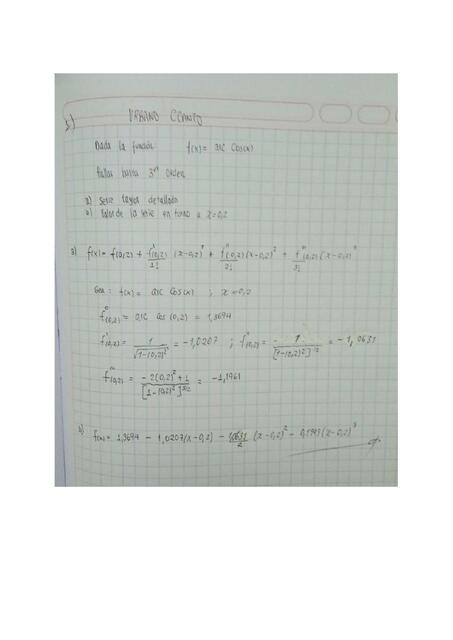 3)
Dada la función f(x) = arc cos(x)
hasta 3er orden
a) Serie Taylor detallada
b) Valor de la serie en torno a x=0,2
a) f(x) = f(0,2) + f'(0,2)/1! (x-0,2)¹ + f''(0,2)/2! (x-0,2)² + f'''(0,2)/3! (x-0,2)³
Sea: f(x) = arc cos(x) ; x=0,2
f⁰(0,2) = arc cos (0,2) = 1,3694
f'(0,2) = 1/√(1-(0,2)²) = -1,0207 ; f''(0,2) = 1/[1-(0,2)²]^3/2 = -1,0631
f'''(0,2) = -2(0,2)²+1/[1-(0,2)²]^5/2 = -1,1961
b) f(x) = 1,3694 - 1,0207(x-0,2) - 1,0631/2 (x-0,2)² - 0,1993(x-0,2)³